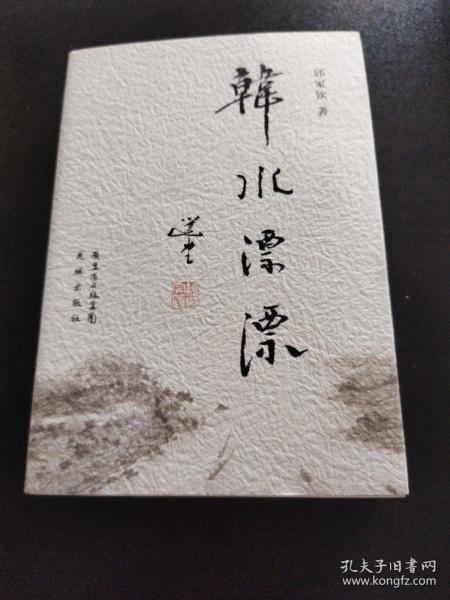 家钦 著
韓水漂漂
選堂
廣東省出版集團
花城出版社
孔夫子旧书网
www.kongfz.com